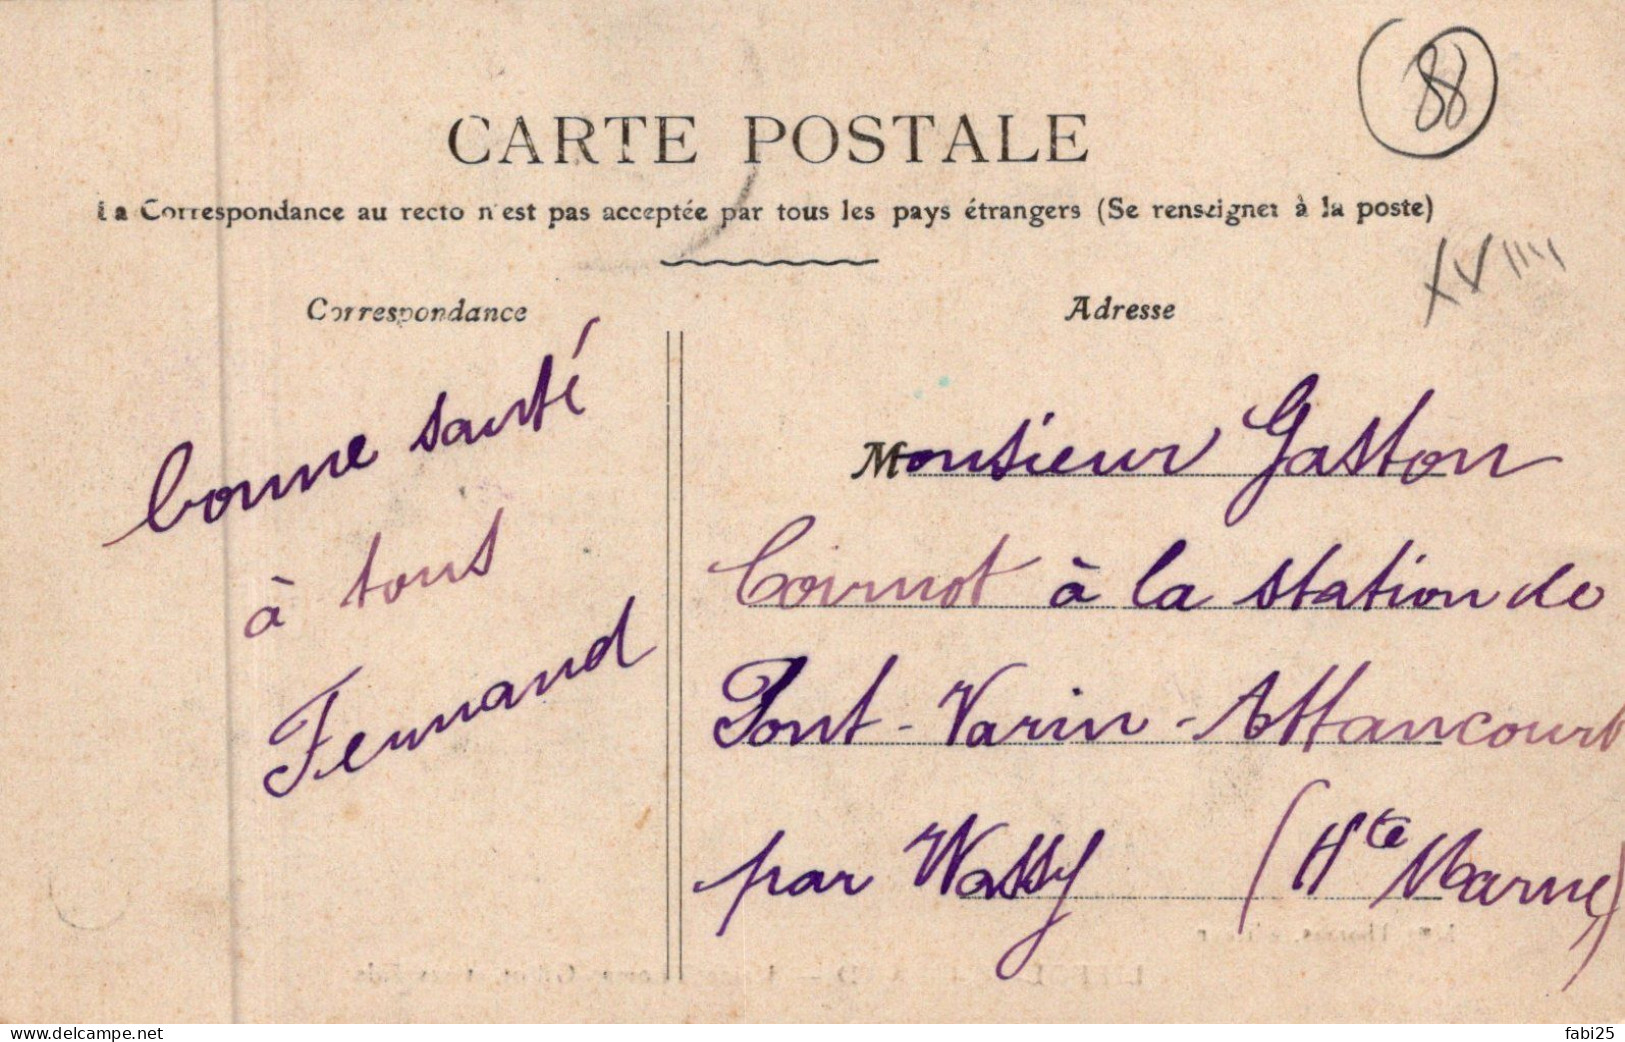 88
CARTE POSTALE
La Correspondance au recto n'est pas acceptée par tous les pays étrangers (Se renseigner à la poste)
XVIIII
Correspondance
bonne santé
à tous
Fernand
Adresse
Monsieur Gaston
Cornot à la station de
Pont-Varin-Attancourt
par Wassy (Hte Marne)
www.delcampe.net
fabi25